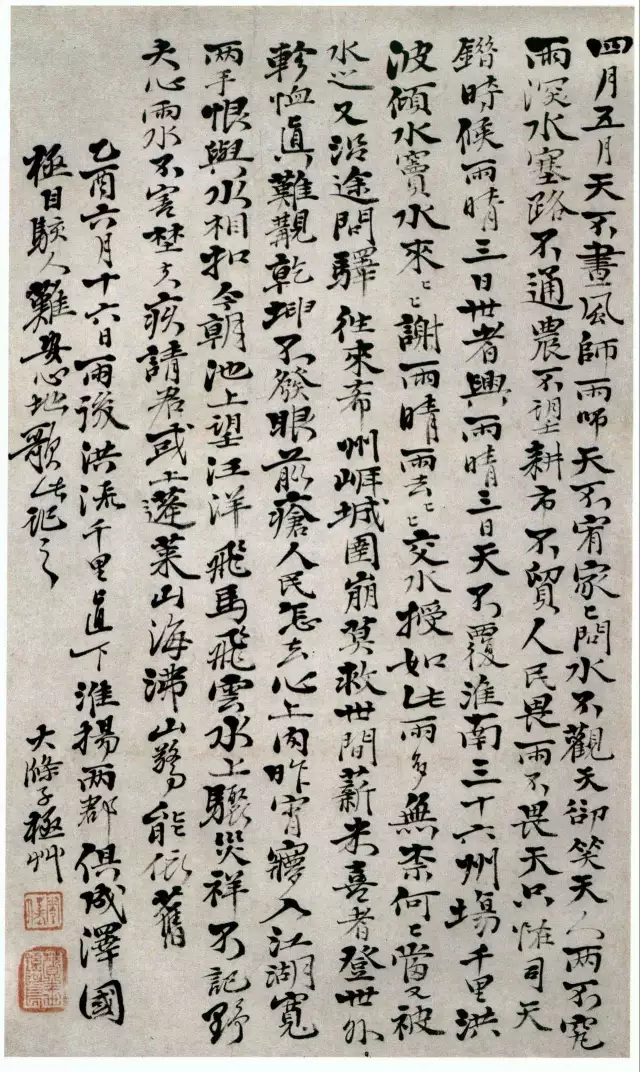 四月五月天不晝風師雨師天不宥家〻問水不觀天卻笑天人兩不究
雨深水塞路不通農不望耕市不貿人民畏雨不畏天只恠司天
錯時候雨晴三日世者興雨晴三日天不覆淮南三十六州場千里洪
波傾水竇水來〻〻謝雨晴雨去〻〻交水授如此雨多無柰何〻當又被
水又沿途問驛往來希州城圍崩莫救世間薪米喜者登世外
軫恤真難覯乾坤不發眼前瘡人民怎去心上肉昨宵寢入江湖寬
兩手恨與水相扣今朝池上望汪洋飛馬飛雲水上驟災祥不記野
夫心雨水不害埜夫疾請君或上蓬萊山海沸山能依舊
乙酉六月十六日雨後洪流千里直下淮揚兩郡俱成澤國
極目駭人難安心地歌此記之
大滌子極艸